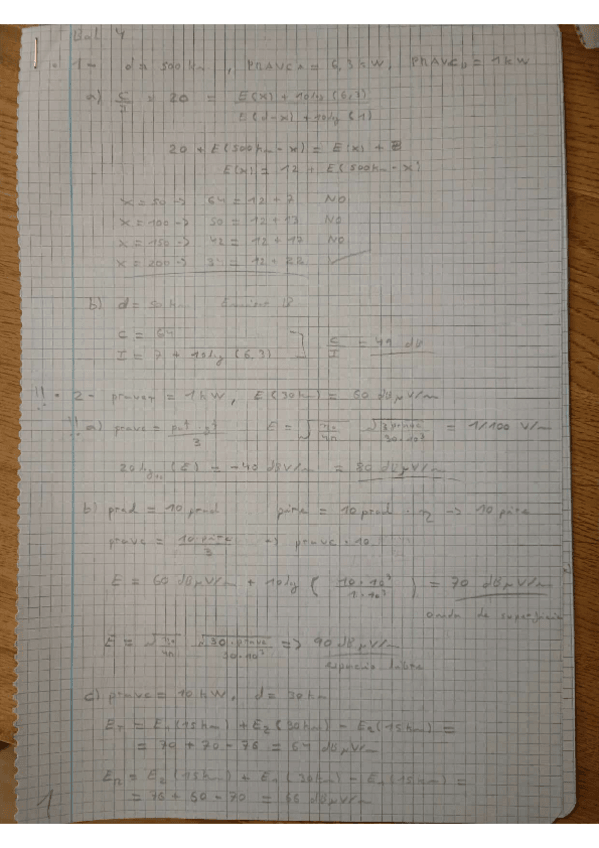 Bol 4
1- d = 500 km, PRAVC A = 6,3 kW, PRAVC B = 1 kW
a) C/I = 20 = E(x) + 10log(6,3) / E(d-x) + 10log(1)
20 + E(500km - x) = E(x) + 8
E(x) = 12 + E(500km - x)
x = 50 -> 64 = 12 + 7 NO
x = 100 -> 50 = 12 + 13 NO
x = 150 -> 42 = 12 + 17 NO
x = 200 -> = 12 + 22
b) d = 50 km
C = 64
I = 7 + 10log(6,3) ] C/I = 49 dB
!! 2- pravct = 1kW, E(30km) = 60 dBμV/m
!! a) pravc = /3 E = = 1/100 V/m
20log₁₀(E) = -40 dBV/m = 80 dBμV/m
b) prad = 10 prad pire = 10 prad · η -> 10 pire
pravc = 10 pire / 3 -> pravc · 10
E = 60 dBμV/m + 10log(10·10³ / 1·10³) = 70 dBμV/m
onda de superficie
E = => 90 dBμV/m
espacio libre
c) pravc = 10kW, d = 30km
E₁(15km) + E₂(30km) - E₂(15km) =
= 70 + 70 - 76 = 64 dBμV/m
E₂(15km) + E₁(30km) - E₁(15km) =
= 76 + 60 - 70 = 66 dBμV/m
1